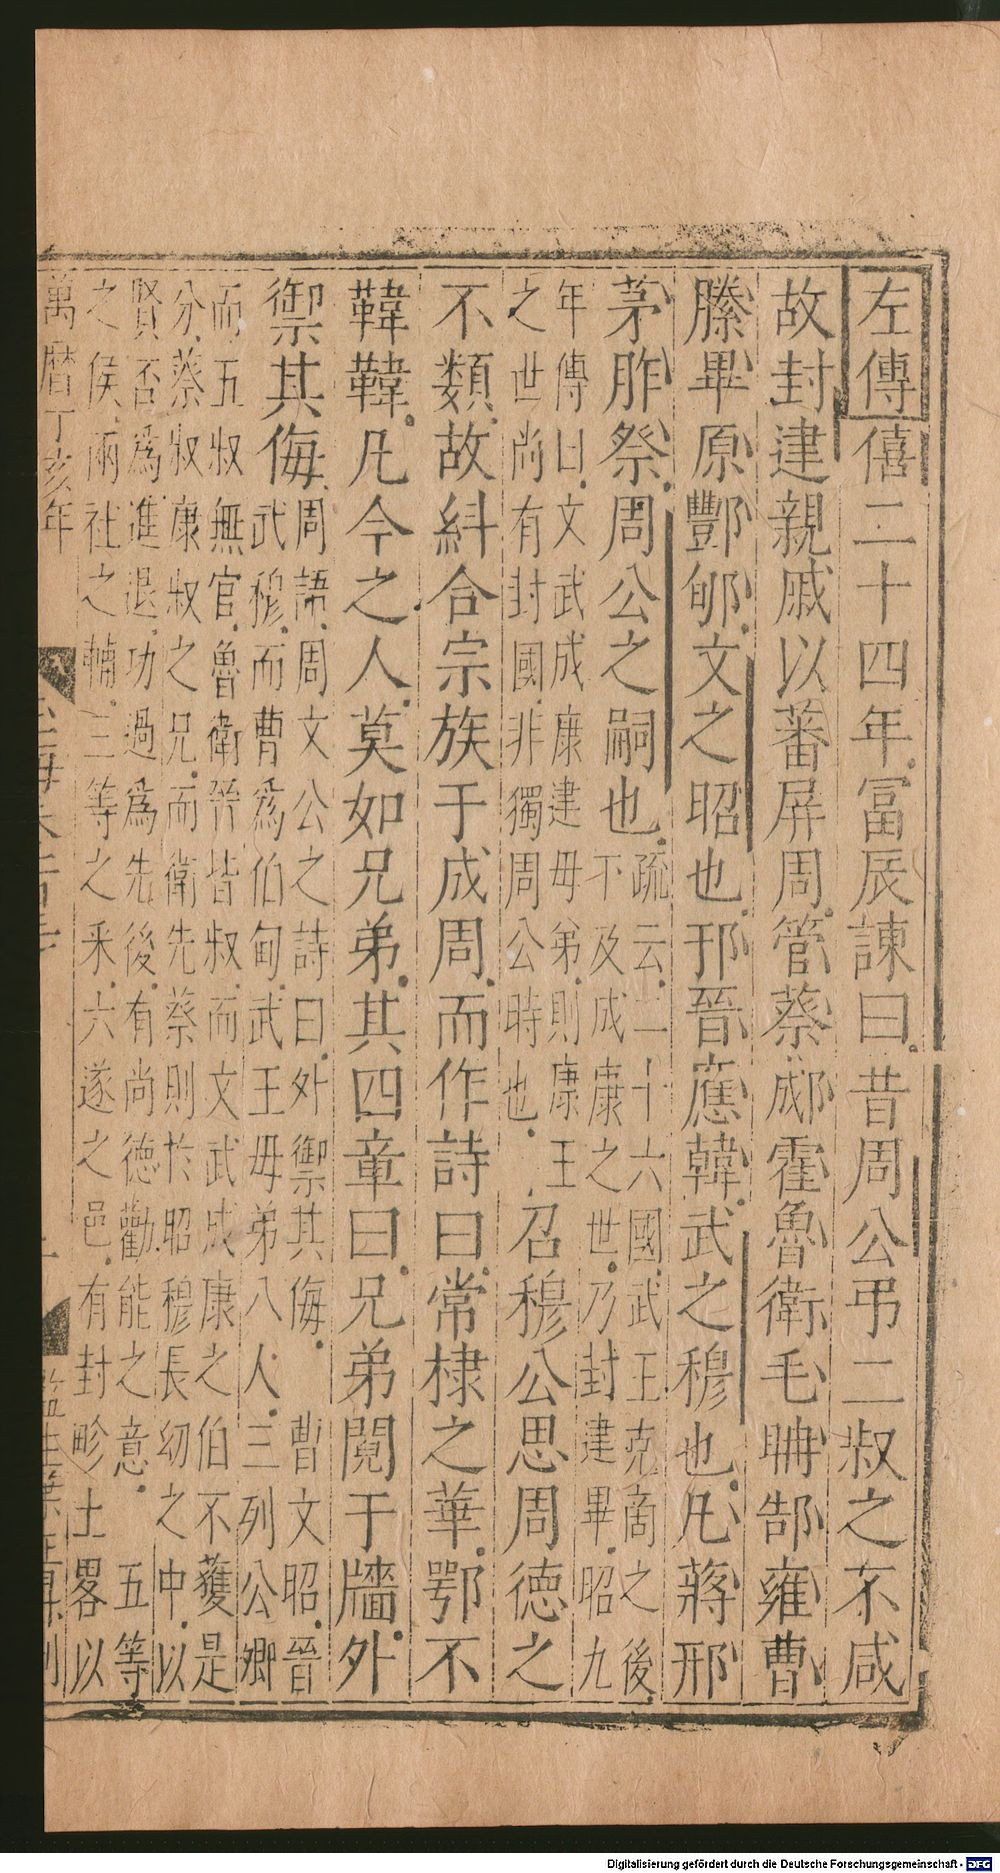 左傳僖二十四年冨辰諫曰昔周公弔二叔之不咸
故封建親戚以蕃屏周管蔡郕霍魯衛毛𥅆郜雍曹
滕畢原酆郇文之昭也邘晉應韓武之穆也凡蔣邢
茅胙祭周公之嗣也疏云二十六國武王克商之後
不及成康之世乃封建畢昭九
年傳曰文武成康建毋弟則康王
之世尚有封國非獨周公時也召穆公思周德之
不類故糾合宗族于成周而作詩曰常棣之華鄂不
韡韡凡今之人莫如兄弟其四章曰兄弟䦧于牆外
禦其侮周語周文公之詩曰外禦其侮 曹文昭晉
武穆而曹爲伯甸武王毋弟八人三列公卿
而五叔無官魯衛晉皆叔而文武成康之伯不獲是
分蔡叔康叔之兄而衛先蔡則於昭穆長幼之中以
賢否爲進退功過爲先後有尚德勸能之意 五等
之侯兩社之輔三等之采六遂之邑有封畛土畧以
萬曆丁亥年
Digitalisierung gefördert durch die Deutsche Forschungsgemeinschaft - DFG